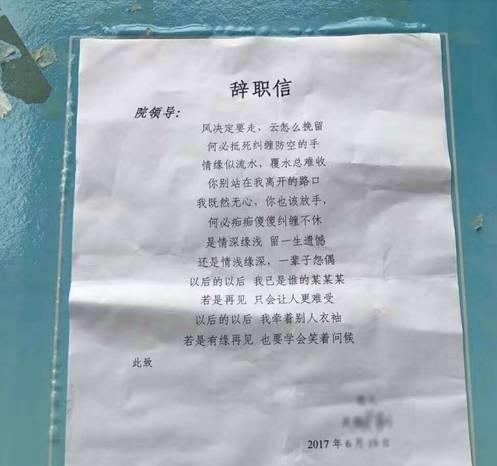 辞职信
院领导：
风决定要走，云怎么挽留
何必抵死纠缠防空的手
情缘似流水，覆水总难收
你别站在我离开的路口
我既然无心，你也该放手，
何必痴痴傻傻纠缠不休
是情深缘浅 留一生遗憾
还是情浅缘深，一辈子怨偶
以后的以后 我已是谁的某某某
若是再见 只会让人更难受
以后的以后 我牵着别人衣袖
若是有缘再见 也要学会笑着问候
此致
2017年6月19日